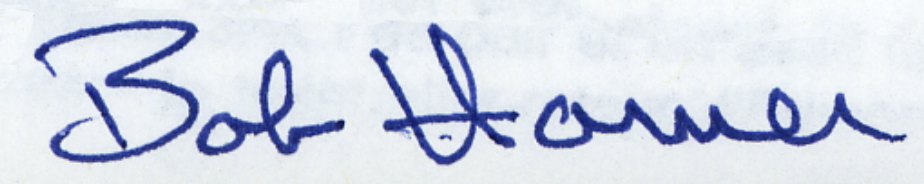 Bob Horner